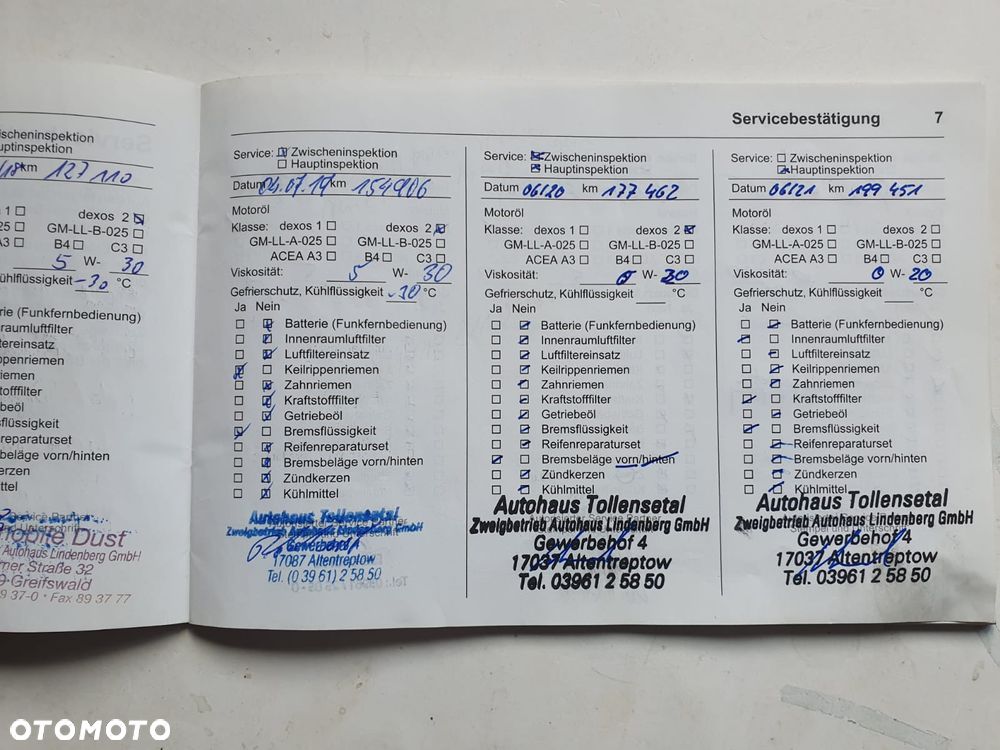 Servicebestätigung 7
ischeninspektion
uptinspektion
km 127 110
1 ☐ dexos 2 ☒
25 ☐ GM-LL-B-025 ☐
A3 ☐ B4 ☐ C3 ☐
5 W- 30
ühlflüssigkeit -30 °C
rie (Funkfernbedienung)
nraumluftfilter
tereinsatz
ppenriemen
riemen
tofffilter
beöl
sflüssigkeit
reparaturset
beläge vorn/hinten
erzen
ttel
Dust
Autohaus Lindenberg GmbH
mer Straße 32
Greifswald
9 37-0 * Fax 89 37 77
Service: ☒ Zwischeninspektion
☐ Hauptinspektion
Datum 04.07.19 km 154906
Motoröl
Klasse: dexos 1 ☐ dexos 2 ☒
GM-LL-A-025 ☐ GM-LL-B-025 ☐
ACEA A3 ☐ B4 ☐ C3 ☐
Viskosität: 5 W- 30
Gefrierschutz, Kühlflüssigkeit -30 °C
Ja Nein
☐ ☒ Batterie (Funkfernbedienung)
☐ ☒ Innenraumluftfilter
☐ ☒ Luftfiltereinsatz
☒ ☐ Keilrippenriemen
☐ ☒ Zahnriemen
☐ ☒ Kraftstofffilter
☐ ☒ Getriebeöl
☒ ☐ Bremsflüssigkeit
☐ ☒ Reifenreparaturset
☐ ☒ Bremsbeläge vorn/hinten
☐ ☒ Zündkerzen
☐ ☒ Kühlmittel
Autohaus Tollensetal
Zweigbetrieb Autohaus Lindenberg GmbH
Gewerbehof 4
17087 Altentreptow
Tel. (0 39 61) 2 58 50
Service: ☒ Zwischeninspektion
☒ Hauptinspektion
Datum 06/20 km 177 462
Motoröl
Klasse: dexos 1 ☐ dexos 2 ☒
GM-LL-A-025 ☐ GM-LL-B-025 ☐
ACEA A3 ☐ B4 ☐ C3 ☐
Viskosität: 0 W- 20
Gefrierschutz, Kühlflüssigkeit °C
Ja Nein
☐ ☒ Batterie (Funkfernbedienung)
☐ ☒ Innenraumluftfilter
☐ ☒ Luftfiltereinsatz
☐ ☒ Keilrippenriemen
☐ ☒ Zahnriemen
☐ ☒ Kraftstofffilter
☐ ☒ Getriebeöl
☐ ☒ Bremsflüssigkeit
☐ ☒ Reifenreparaturset
☒ ☐ Bremsbeläge vorn/hinten
☐ ☒ Zündkerzen
☐ ☒ Kühlmittel
Autohaus Tollensetal
Zweigbetrieb Autohaus Lindenberg GmbH
Gewerbehof 4
17087 Altentreptow
Tel. 03961 2 58 50
Service: ☐ Zwischeninspektion
☒ Hauptinspektion
Datum 06/21 km 199 451
Motoröl
Klasse: dexos 1 ☐ dexos 2 ☐
GM-LL-A-025 ☐ GM-LL-B-025 ☐
ACEA A3 ☐ B4 ☐ C3 ☐
Viskosität: 0 W- 20
Gefrierschutz, Kühlflüssigkeit °C
Ja Nein
☐ ☒ Batterie (Funkfernbedienung)
☒ ☐ Innenraumluftfilter
☐ ☒ Luftfiltereinsatz
☐ ☒ Keilrippenriemen
☐ ☒ Zahnriemen
☒ ☐ Kraftstofffilter
☐ ☒ Getriebeöl
☒ ☐ Bremsflüssigkeit
☐ ☒ Reifenreparaturset
☐ ☒ Bremsbeläge vorn/hinten
☐ ☒ Zündkerzen
☐ ☒ Kühlmittel
Autohaus Tollensetal
Zweigbetrieb Autohaus Lindenberg GmbH
Gewerbehof 4
17087 Altentreptow
Tel. 03961 2 58 50
OTOMOTO